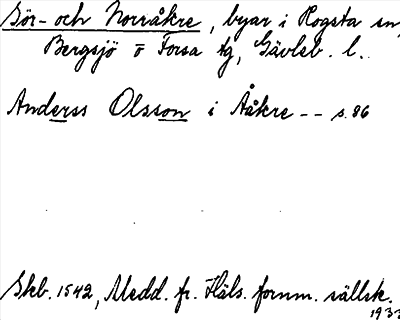 Sör- och Norråkre, byar i Rogsta sn,
Bergsjö o Forsa tg, Gävleb. l.
Anderss Olsson i Ååkre -- s. 86
Skb. 1542, Medd. fr. Häls. fornm. sällsk.
1933